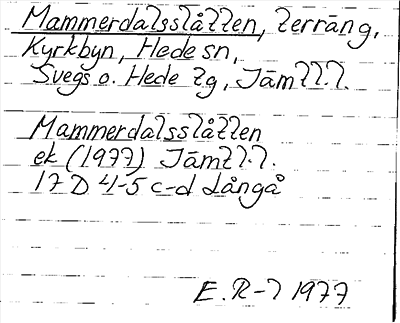 Mammerdalsslåtten, terräng,
Kyrkbyn, Hede sn,
Svegs o. Hede tg, Jämtl.l.
Mammerdalsslåtten
ek (1977) Jämtl.l.
17 D 4-5 c-d Långå
E. R-l 1977